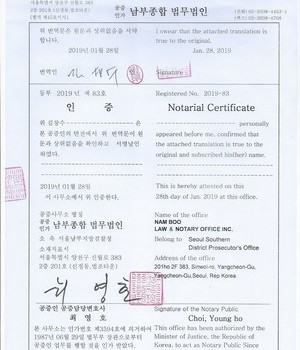 서울특별시 양천구 신월로 383
2층 201호 (신정동,법조타운)
공증
인가 남부종합 법무법인
위 번역문은 원문과 상위없음을 서약
합니다.
2019년 01월 28일
번역인
I swear that the attached translation is
true to the original.
Jan. 28, 2019
Signature
등부 2019 년 제 83호
인 증
위 김창수
본 공증인의 면전에서 위 번역문이 원
문과 상위없음을 확인하고 서명날인
하였다.
2019년 01월 28일
이 사무소에서 위 인증한다.
Registered No. 2019-83
Notarial Certificate
personally
appeared before me, confirmed that
the attached translation is true to the
original and subscribed his(her) name.
This is hereby attested on this
28th day of Jan. 2019 at this office.
공증사무소 명칭
공증
인가 남부종합 법무법인
소 속 서울남부지방검찰청
소재지표시
서울특별시 양천구 신월로 383
2층 201호 (신정동,법조타운)
Name of the office
NAM BOO
LAW & NOTARY OFFICE INC.
Belong to Seoul Southern
District Prosecutor's Office
Address of the office
201ho 2F 383, Sinwol-ro, Yangcheon-Gu,
Yangcheon-Gu,Seoul, Rep Korea
최영호
공증인 공증담당변호사
최 영 호
본 사무소는 인가번호 제3594호에 의거하여
1987년 06월 29일 법무부 장관으로부터
공증인 업무를 행할 것을 인가 받았다.
Signature of the Notary Public
Choi, Young ho
This office has been authorized by the
Minister of Justice, the Republic of
Korea, to act as Notary Public Since